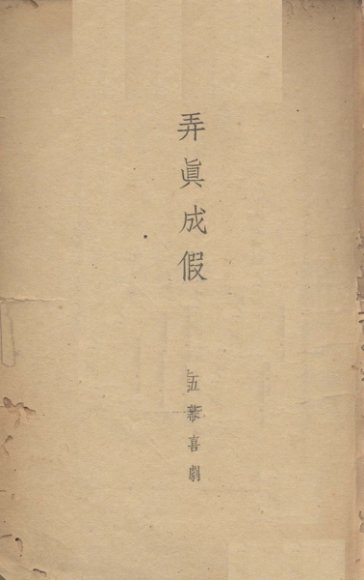 弄眞成假
五幕喜劇